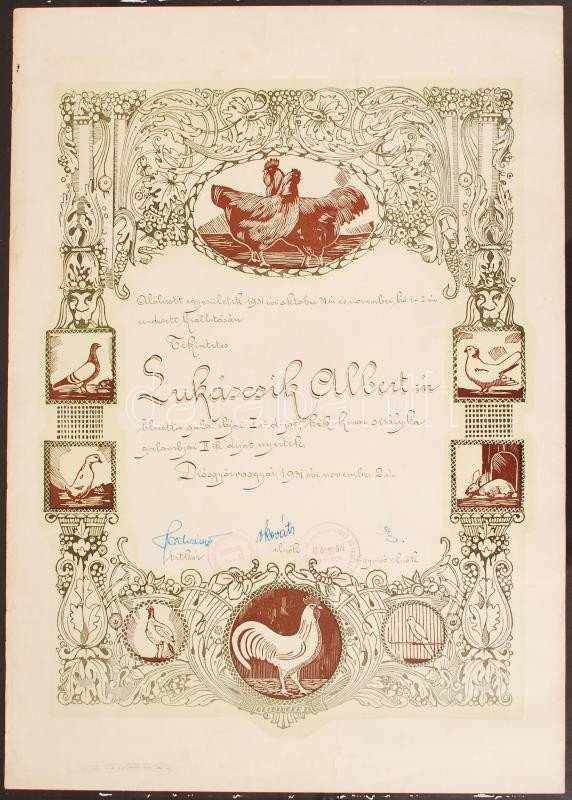 Alólirott egyesületek 1931 évi oktober 31 én és november hó 1-2 án
rendezett kiállításán
Tekintetes
Lukácsik Albert úr
galambjai I. díjat, kék kinai sirályka
galambjai II ik díjat nyertek.
Diósgyőrvasgyár 1931 évi november 2 án
titkár
elnök
Diósgyőri
ügyvivő elnök
darabanth